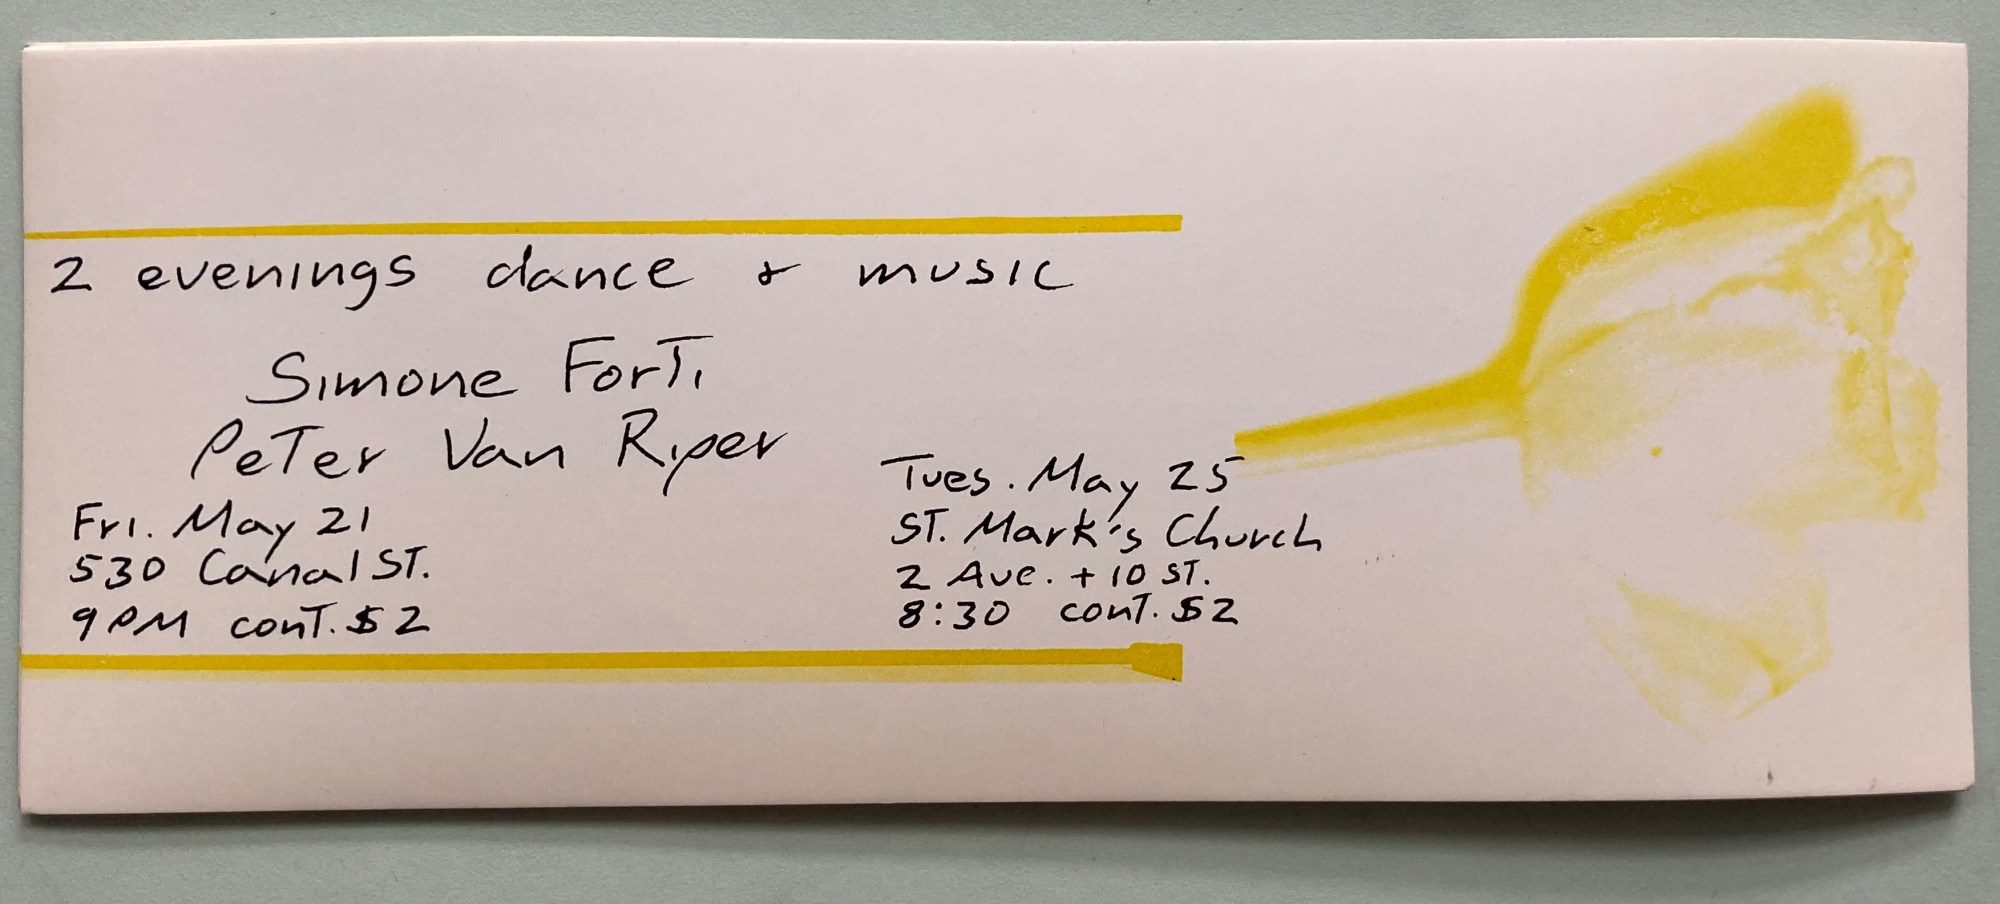 2 evenings dance + music
Simone Forti
Peter Van Riper
Fri. May 21
530 Canal ST.
9 PM cont. $2
Tues. May 25
ST. Mark's Church
2 Ave. + 10 ST.
8:30 cont. $2